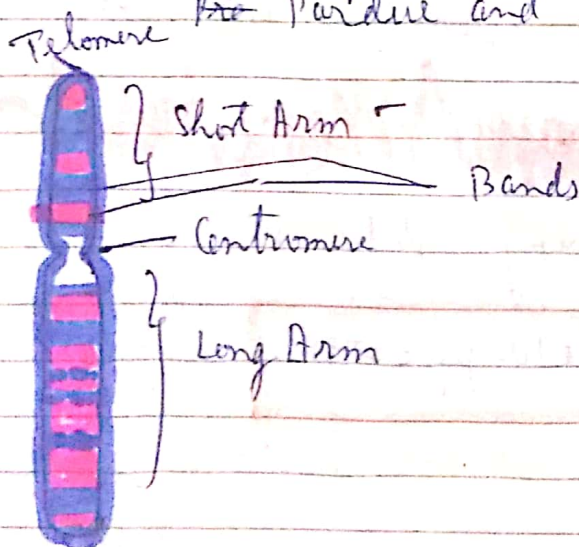 Pardue and
Telomere
Short Arm -
Bands
Centromere
Long Arm